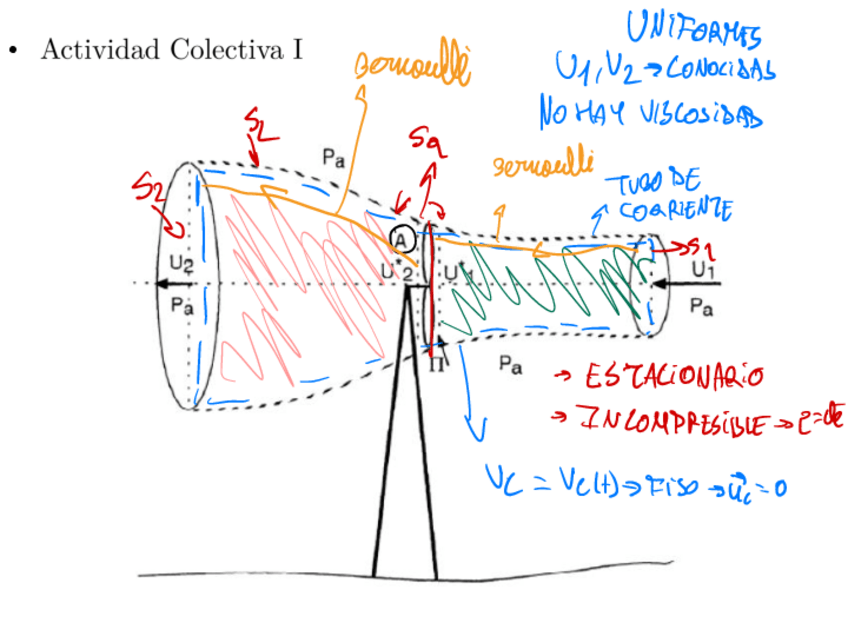 • Actividad Colectiva I
UNIFORMES
U1, U2 → CONOCIDAS
NO HAY VISCOSIDAD
Bernoulli
SL
Pa
Sa
Bernoulli
TUBO DE
CORRIENTE
S2
A
U2
U*2
U*1
S1
U1
Pa
Pa
Π
Pa
→ ESTACIONARIO
→ INCOMPRESIBLE → ρ=cte
Vc = Vc(t) ⇒ FISO → u⃗c = 0